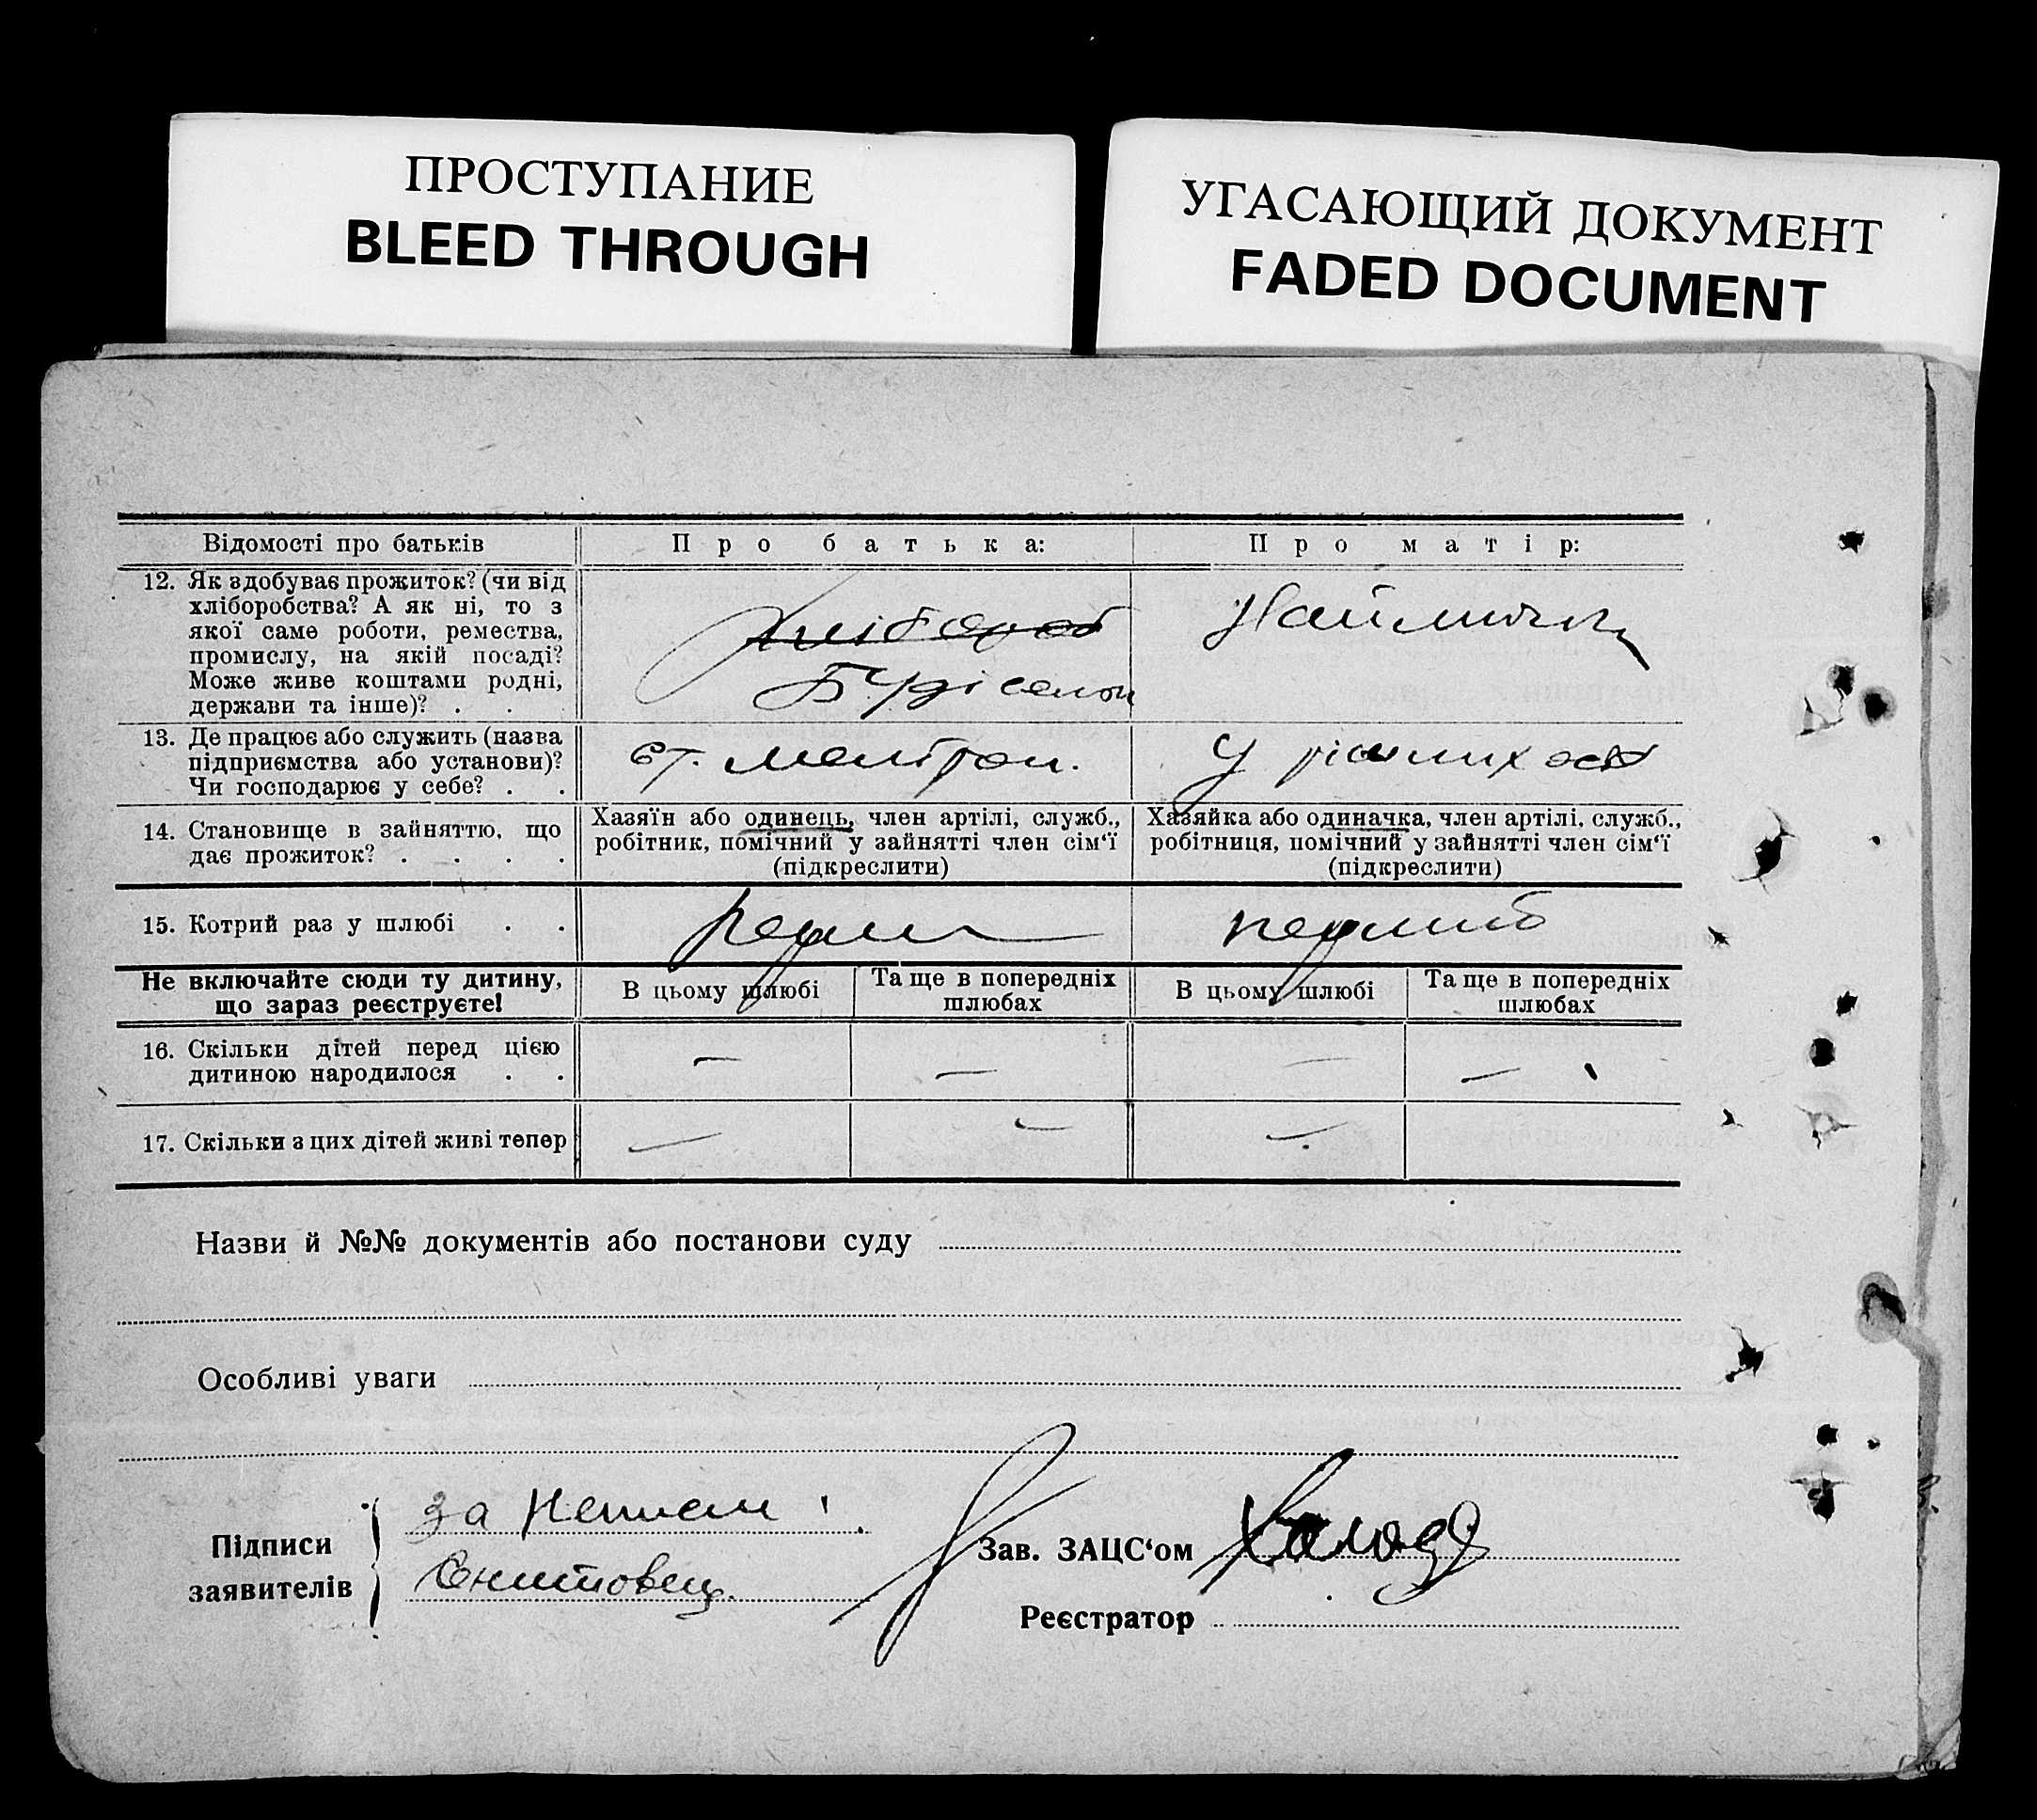 ПРОСТУПАНИЕ
BLEED THROUGH
УГАСАЮЩИЙ ДОКУМЕНТ
FADED DOCUMENT
Відомості про батьків
Про батька:
Про матір:
12. Як здобуває прожиток? (чи від
хліборобства? А як ні, то з
якої саме роботи, ремества,
промислу, на якій посаді?
Може живе коштами родні,
держави та інше)? . .
Хлібороб
Наймичка
13. Де працює або служить (назва
підприємства або установи)?
Чи господарює у себе? . .
ст.
у різних осіб
14. Становище в зайняттю, що
дає прожиток? . . . .
Хазяїн або одинець, член артілі, служб.,
робітник, помічний у зайнятті член сім‘ї
(підкреслити)
Хазяйка або одиначка, член артілі, служб.,
робітниця, помічний у зайнятті член сім‘ї
(підкреслити)
15. Котрий раз у шлюбі . .
перший
Не включайте сюди ту дитину,
що зараз реєструєте!
В цьому шлюбі
Та ще в попередніх
шлюбах
В цьому шлюбі
Та ще в попередніх
шлюбах
16. Скільки дітей перед цією
дитиною народилося . .
— — — —
17. Скільки з цих дітей живі тепер
— — —
Назви й №№ документів або постанови суду
Особливі уваги
Підписи
заявителів
за
Зав. ЗАЦС‘ом
Реєстратор